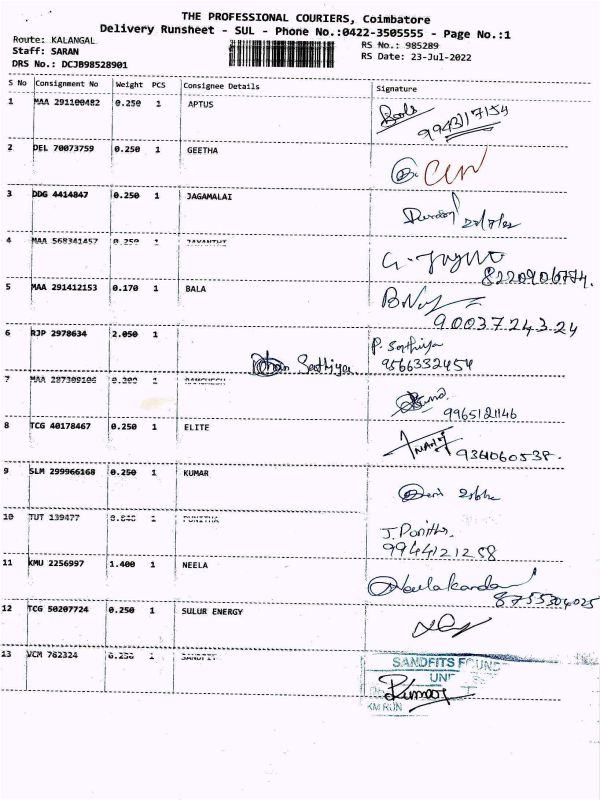 THE PROFESSIONAL COURIERS, Coimbatore
Delivery Runsheet - SUL - Phone No.:0422-3505555 - Page No.:1
Route: KALANGAL
RS No.: 985289
Staff: SARAN
RS Date: 23-Jul-2022
DRS No.: DCJB98528901
S No Consignment No Weight PCS Consignee Details Signature
1 MAA 291100482 0.250 1 APTUS
9943117154
2 DEL 70073759 0.250 1 GEETHA
3 DDG 4414847 0.250 1 JAGAMALAI
4 MAA 568341457 0.250 1 JAYANTHI
8220906774.
5 MAA 291412153 0.170 1 BALA
90037 243 24
6 RJP 2978634 2.050 1
P. Sathiya
Sathiya 9566332454
7 MAA 287309106 1
9965121146
8 TCG 40178467 0.250 1 ELITE
9361060538.
9 SLM 299966168 0.250 1 KUMAR
10 TUT 139477 1 PUNITHA
J. Punitha
11 KMU 2256997 1.400 1 NEELA
Neelakandan
8755304025
12 TCG 50207724 0.250 1 SULUR ENERGY
13 VCM 782324 0.250 1 SANDFIT
SANDFITS FOUND
UN
Kumar